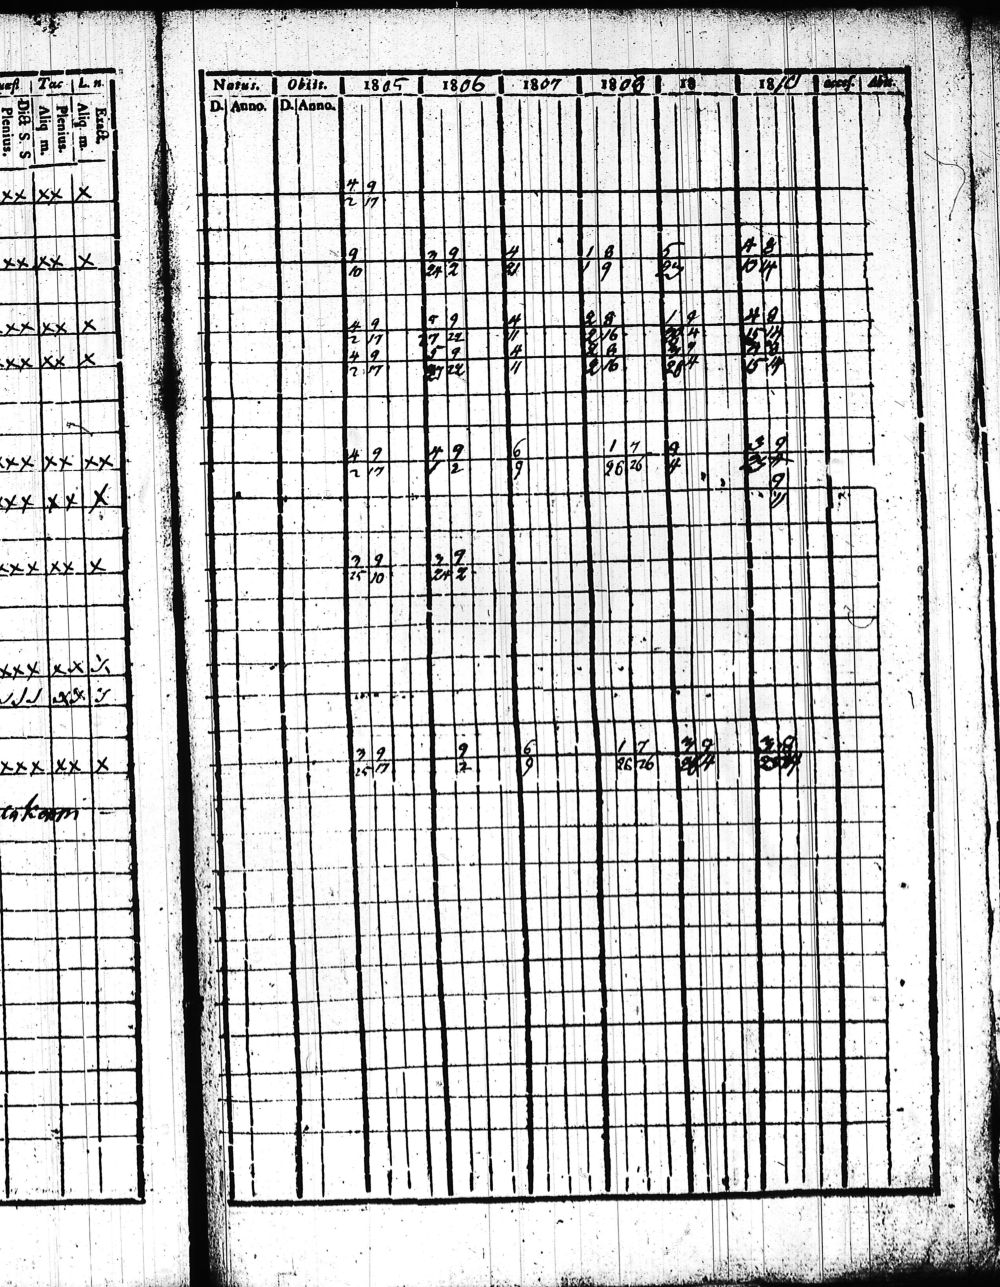 Tac L. n.
Plenius. Dict S S Aliq m. Plenius. Aliq m. Exact.
Natus. Obiit. 1805 1806 1807 1808 18 1810 accef. Abit.
D. Anno. D. Anno.
xx xx x
4 9
2 17
xx xx x
9 3 9 4 1 8 5 4 8
10 24 2 21 1 9 23 10 14
xx xx x
4 9 5 9 4 2 8 1 9 4 8
2 17 27 22 11 2 16 4 15 14
xxx xx x
4 9 5 9 4 2 8
2 17 27 22 11 2 16 28 4 15 14
xxx xx xx
4 9 4 9 6 1 7 9 3 9
2 17 1 2 9 26 26 4
xx xx x
9
11
xxx xx x
3 9 3 9
25 10 24 2
xxx xx
xx
xxx xx x
3 9 9 6 1 7 3 9
25 17 2 9 26 26